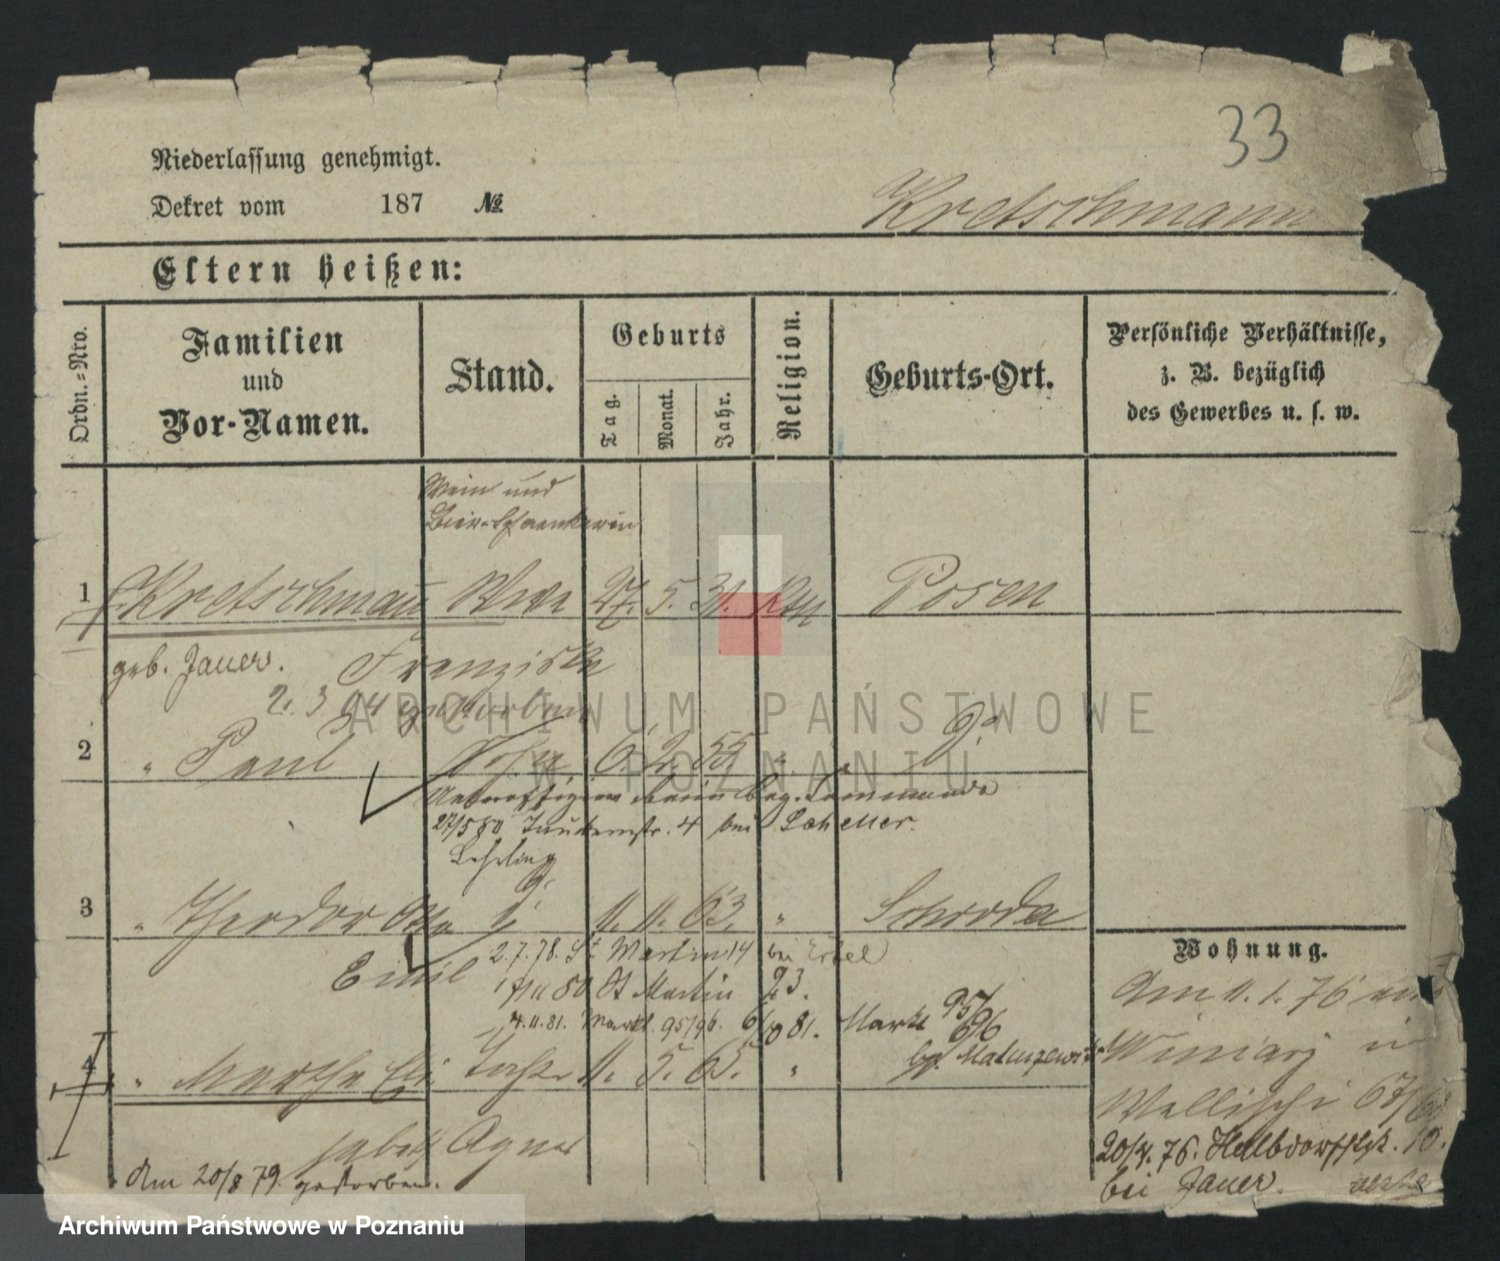 33
Niederlassung genehmigt.
Dekret vom 187 №
Kretschmann
Eltern heißen:
Ordn.=Nro.
Familien
und
Vor-Namen.
Stand.
Geburts
Tag.
Monat.
Jahr.
Religion.
Geburts-Ort.
Persönliche Verhältnisse,
z. B. bezüglich
des Gewerbes u. s. w.
Wein und
Bier-Schaenkerin
1 Kretschmann Wwe 27. 5. 31. Kth Posen
geb. Jauer. Franziska
2. 3 94 gestorben
2 " Paul Sohn 6. 2. 55 " do
Unteroffizier beim Bez. Commando
27/5 80 4 bei Scheller.
Lehrling
3 " Theodor Otto do 11. 11. 63. " Schroda
Emil 2. 7. 78. St Martin 14 bei
17/11 80 St Martin 23.
4. 11. 81. Markt 95/96. 6/10 81. Markt 95/96
bei Matuszewski
4 " Martha Eli Tochter 11. 5. 65. "
sabeth Agnes
den 20/8 79. gestorben.
Wohnung.
Am 11. 1. 76 aus
Winiary in
Wallischei 67/68
20/4. 76. Halbdorfstr. 10.
bei Jauer.
ARCHIWUM PAŃSTWOWE
W POZNANIU
Archiwum Państwowe w Poznaniu